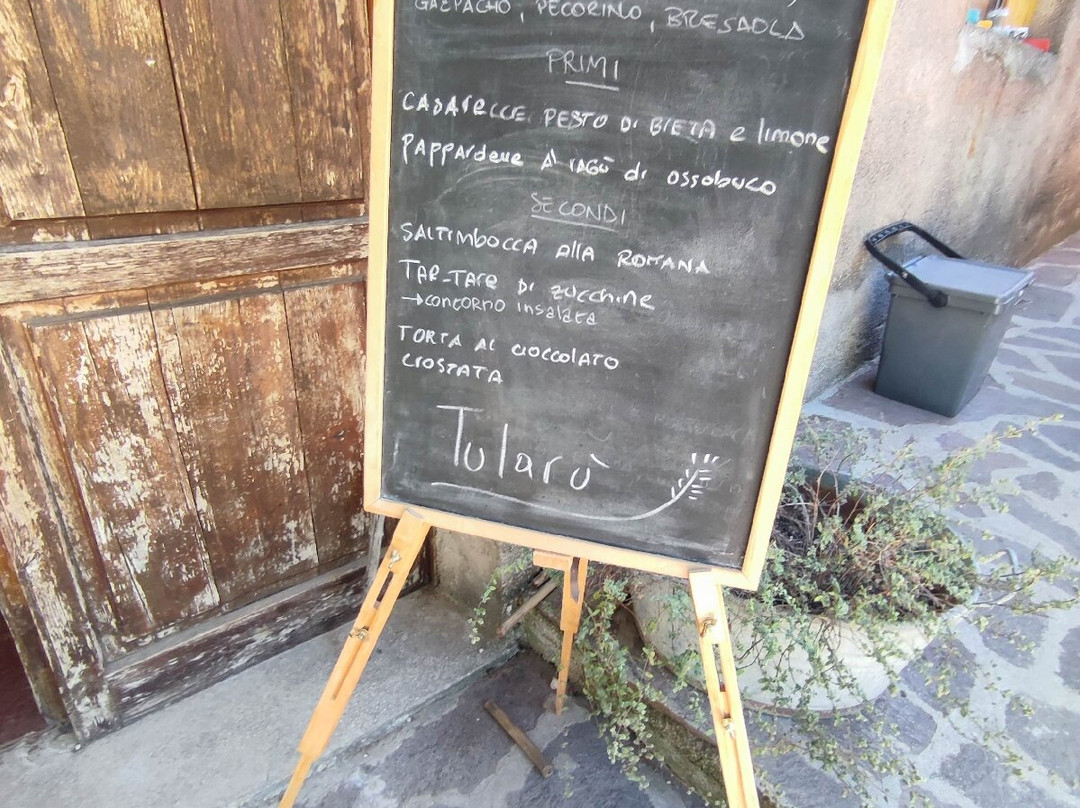 GAZPACHO, PECORINO, BRESAOLA
PRIMI
CASARECCE PESTO DI BIETA e limone
PAPPARDELLE AL RAGÙ di ossobuco
SECONDI
SALTIMBOCCA allA ROMANA
TAR-TARe DI zucchine
→CONTORNO insalata
TORTA AL CIOCCOLATO
CROSTATA
Tularù